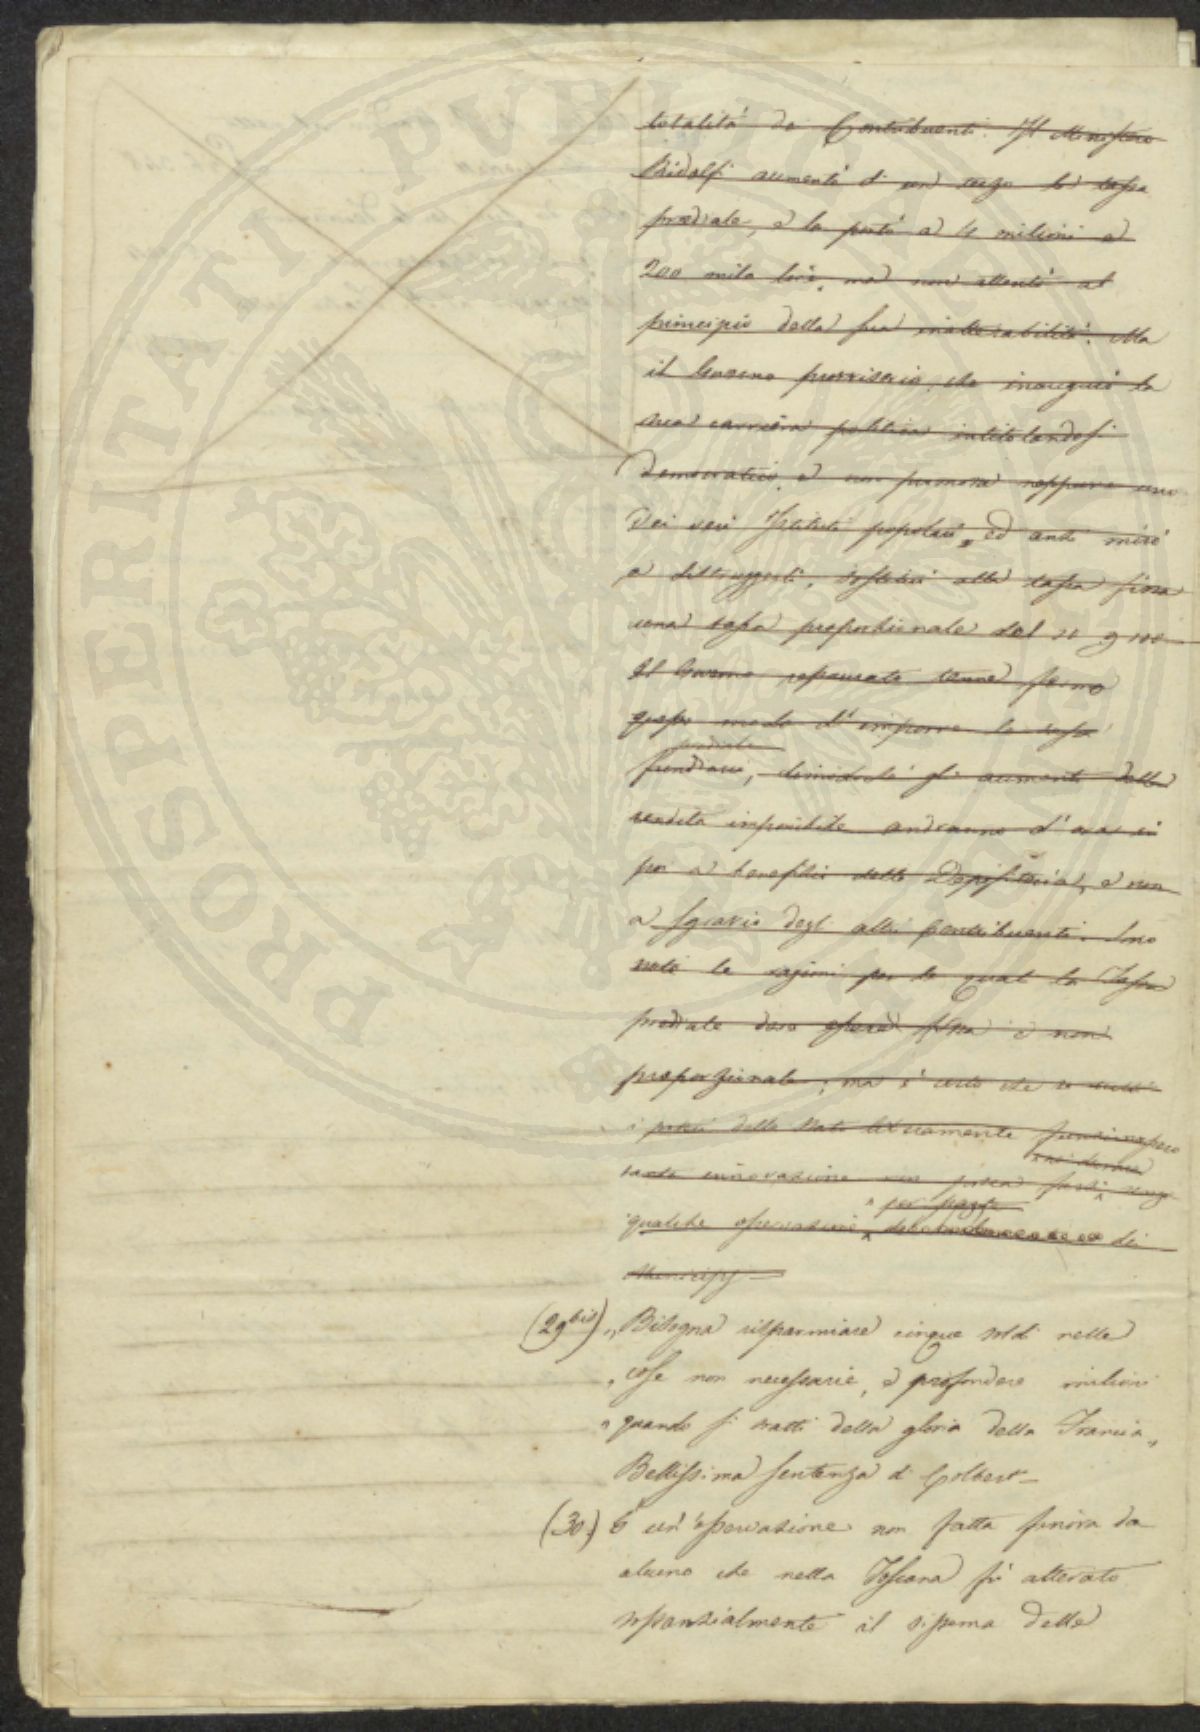 totalità de Contribuenti. Il Ministero
Ridolfi aumentò di un terzo la tassa
prediale, e la portò a 4 milioni e
200 mila lire, ma non attentò al
principio della sua inalterabilità. Ma
il Governo provvisorio, che inaugurò la
sua carriera politica intitolandosi
democratico, e non promosse neppure uno
dei veri Istituti popolari, ed anzi mirò
a distruggerli, sostituì alla tassa fissa
una tassa proporzionale del
Il Governo restaurato tenne fermo
questo modo d'imporre la tassa
prediale
fundiaria, dimodochè gli aumenti della
rendita imponibile andranno d'ora in
poi a benefizio della Depositeria, e non
a sgravio degl' altri contribuenti. Sono
note le ragioni per le quali la Tassa
prediale deve essere fissa e non
proporzionale; ma è certo che
i poteri dello Stato funzionassero
tanta innovazione non potea farsi senza
qualche operazione per parte dei
Municipj —
(29 bis) „ Bisogna risparmiare cinque soldi nelle
„ cose non necessarie, e profondere milioni
„ quando si tratti della gloria della Francia „
Bellissima sentenza di Colbert —
(30) È un'osservazione non fatta finora da
alcuno che nella Toscana fu alterato
sostanzialmente il sistema delle
PROSPERITATI PUBLICAE